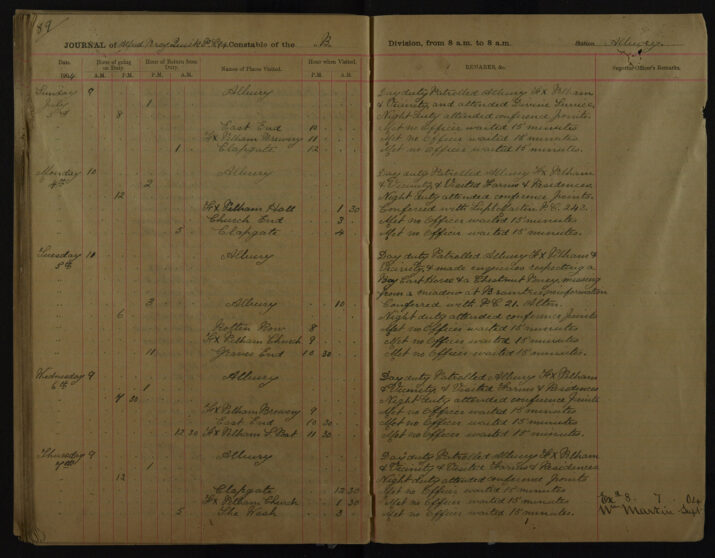 89
JOURNAL of Alfred Constable of the B. Division, from 8 a.m. to 8 a.m. Station Albury
Date. Hour of going on Duty Hour of Return from Duty. Names of Places Visited. Hour when Visited. REMARKS, &c. Superior Officer's Remarks.
1904 A.M. P.M. P.M. A.M. P.M. A.M.
Sunday 9 Albury Day duty Patrolled Albury Fx Pelham
July 1 & Vicinity and attended Divine Service,
3rd 8 Night duty attended conference Points.
East End 10 Met no Officer waited 15 minutes
Fx Pelham Brewery 11 Met no Officer waited 15 minutes
1 Clapgate 12 Met no Officer waited 15 minutes.
Monday 10 Albury Day duty Patrolled Albury Fx Pelham
4th 2 & Vicinity, & Visited Farms & Residences
12 Night duty attended conference Points.
Fx Pelham Hall 1 30 Confered with Supt Martin P.C. 242.
Church End 3 Met no Officer waited 15 minutes.
5 Clapgate 4 Met no Officer waited 15 minutes.
Tuesday 10 Albury Day duty Patrolled Albury Fx Pelham &
5th Vicinity, & made enquiries respecting a
Bay Cart Horse & a Chestnut Poney, missing
from a meadow at Braintree, no information
3 Albury 10 Conferred with P.C. 21. Alton.
6 Night duty attended conference Points
Rotten Row 8 Met no Officer waited 15 minutes
Fx Pelham Church 9 Met no Officer waited 15 minutes
11 Graves End 10 30 Met no Officer waited 15 minutes.
Wednesday 9 Albury Day duty Patrolled Albury Fx Pelham
6th 1 & Vicinity, & Visited Farms & Residences
7 30 Night duty attended conference Points
Fx Pelham Brewery 9 Met no Officer waited 15 minutes
East End 10 30 Met no Officer waited 15 minutes
12 30 Fx Pelham 11 30 Met no Officer waited 15 minutes.
Thursday 9 Albury Day duty Patrolled Albury Fx Pelham
7th 1 & Vicinity & Visited Farms & Residences
12 Night duty attended conference Points
Clapgate 12 30 Met no Officer waited 15 minutes
Fx Pelham Church 1 30 Met no Officer waited 15 minutes Exd 8. 7. 04
5 The Wash 3 Met no Officer waited 15 minutes. Wm Martin Supt